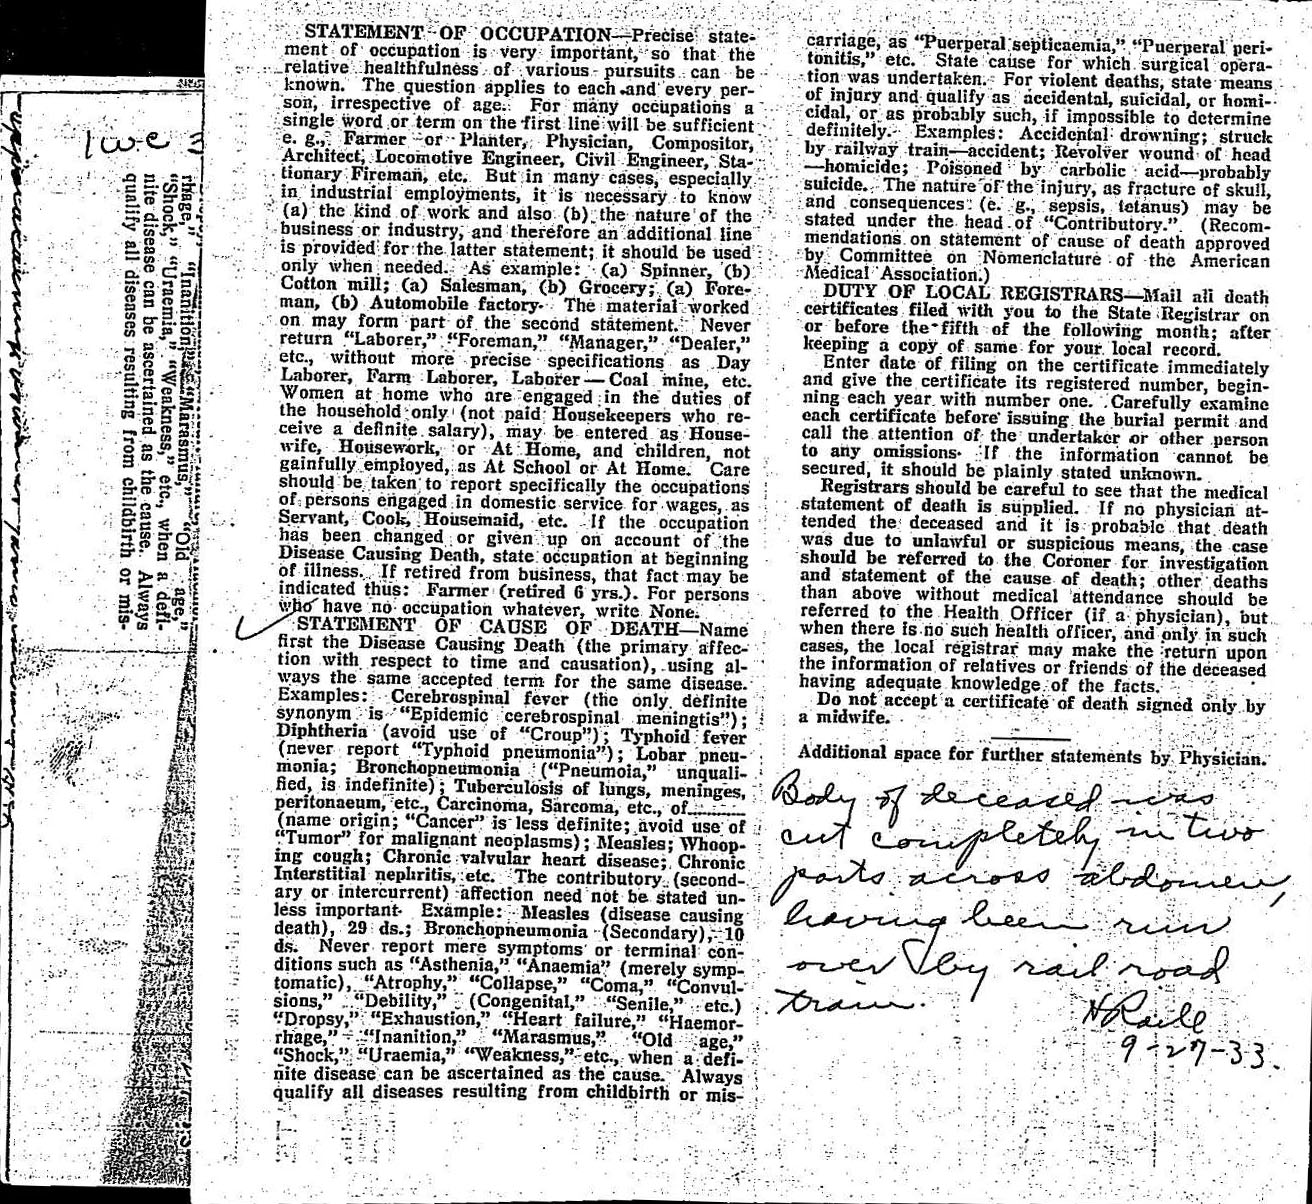 rhage," "Inanition," "Marasmus," "Old age,"
"Shock," "Uraemia," "Weakness," etc., when a defi-
nite disease can be ascertained as the cause. Always
qualify all diseases resulting from childbirth or mis-
STATEMENT OF OCCUPATION—Precise state-
ment of occupation is very important, so that the
relative healthfulness of various pursuits can be
known. The question applies to each and every per-
son, irrespective of age. For many occupations a
single word or term on the first line will be sufficient
e. g., Farmer or Planter, Physician, Compositor,
Architect, Locomotive Engineer, Civil Engineer, Sta-
tionary Fireman, etc. But in many cases, especially
in industrial employments, it is necessary to know
(a) the kind of work and also (b) the nature of the
business or industry, and therefore an additional line
is provided for the latter statement; it should be used
only when needed. As example: (a) Spinner, (b)
Cotton mill; (a) Salesman, (b) Grocery; (a) Fore-
man, (b) Automobile factory. The material worked
on may form part of the second statement. Never
return "Laborer," "Foreman," "Manager," "Dealer,"
etc., without more precise specifications as Day
Laborer, Farm Laborer, Laborer—Coal mine, etc.
Women at home who are engaged in the duties of
the household only (not paid Housekeepers who re-
ceive a definite salary), may be entered as House-
wife, Housework, or At Home, and children, not
gainfully employed, as At School or At Home. Care
should be taken to report specifically the occupations
of persons engaged in domestic service for wages, as
Servant, Cook, Housemaid, etc. If the occupation
has been changed or given up on account of the
Disease Causing Death, state occupation at beginning
of illness. If retired from business, that fact may be
indicated thus: Farmer (retired 6 yrs.). For persons
who have no occupation whatever, write None.
STATEMENT OF CAUSE OF DEATH—Name
first the Disease Causing Death (the primary affec-
tion with respect to time and causation), using al-
ways the same accepted term for the same disease.
Examples: Cerebrospinal fever (the only definite
synonym is "Epidemic cerebrospinal meningtis");
Diphtheria (avoid use of "Croup"); Typhoid fever
(never report "Typhoid pneumonia"); Lobar pneu-
monia; Bronchopneumonia ("Pneumoia," unquali-
fied, is indefinite); Tuberculosis of lungs, meninges,
peritonaeum, etc., Carcinoma, Sarcoma, etc., of............
(name origin; "Cancer" is less definite; avoid use of
"Tumor" for malignant neoplasms); Measles; Whoop-
ing cough; Chronic valvular heart disease; Chronic
Interstitial nephritis, etc. The contributory (second-
ary or intercurrent) affection need not be stated un-
less important. Example: Measles (disease causing
death), 29 ds.; Bronchopneumonia (Secondary), 10
ds. Never report mere symptoms or terminal con-
ditions such as "Asthenia," "Anaemia" (merely symp-
tomatic), "Atrophy," "Collapse," "Coma," "Convul-
sions," "Debility," (Congenital," "Senile," etc.)
"Dropsy," "Exhaustion," "Heart failure," "Haemor-
rhage," "Inanition," "Marasmus," "Old age,"
"Shock," "Uraemia," "Weakness," etc., when a defi-
nite disease can be ascertained as the cause. Always
qualify all diseases resulting from childbirth or mis-
carriage, as "Puerperal septicaemia," "Puerperal peri-
tonitis," etc. State cause for which surgical opera-
tion was undertaken. For violent deaths, state means
of injury and qualify as accidental, suicidal, or homi-
cidal, or as probably such, if impossible to determine
definitely. Examples: Accidental drowning; struck
by railway train—accident; Revolver wound of head
—homicide; Poisoned by carbolic acid—probably
suicide. The nature of the injury, as fracture of skull,
and consequences (e. g., sepsis, tetanus) may be
stated under the head of "Contributory." (Recom-
mendations on statement of cause of death approved
by Committee on Nomenclature of the American
Medical Association.)
DUTY OF LOCAL REGISTRARS—Mail all death
certificates filed with you to the State Registrar on
or before the fifth of the following month; after
keeping a copy of same for your local record.
Enter date of filing on the certificate immediately
and give the certificate its registered number, begin-
ning each year with number one. Carefully examine
each certificate before issuing the burial permit and
call the attention of the undertaker or other person
to any omissions. If the information cannot be
secured, it should be plainly stated unknown.
Registrars should be careful to see that the medical
statement of death is supplied. If no physician at-
tended the deceased and it is probable that death
was due to unlawful or suspicious means, the case
should be referred to the Coroner for investigation
and statement of the cause of death; other deaths
than above without medical attendance should be
referred to the Health Officer (if a physician), but
when there is no such health officer, and only in such
cases, the local registrar may make the return upon
the information of relatives or friends of the deceased
having adequate knowledge of the facts.
Do not accept a certificate of death signed only by
a midwife.
Additional space for further statements by Physician.
Body of deceased was
cut completely in two
parts across abdomen,
having been run
over by rail road
train.
9-27-33.